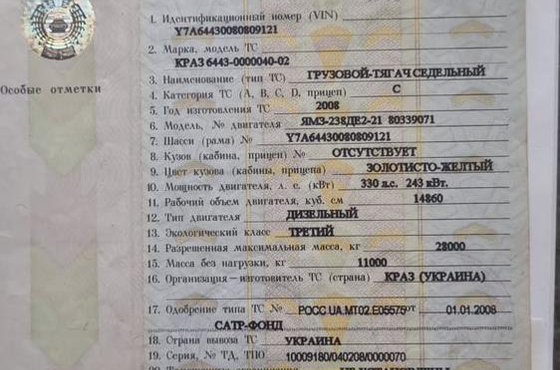 Особые отметки
1. Идентификационный номер (VIN)
Y7A64430080809121
2. Марка, модель ТС
КРАЗ 6443-0000040-02
3. Наименование (тип ТС) ГРУЗОВОЙ-ТЯГАЧ СЕДЕЛЬНЫЙ
4. Категория ТС (А, В, С, D, прицеп) С
5. Год изготовления ТС 2008
6. Модель, № двигателя ЯМЗ-238ДЕ2-21 80339071
7. Шасси (рама) № Y7A64430080809121
8. Кузов (кабина, прицеп) № ОТСУТСТВУЕТ
9. Цвет кузова (кабины, прицепа) ЗОЛОТИСТО-ЖЕЛТЫЙ
10. Мощность двигателя, л. с. (кВт) 330 л.с. 243 кВт.
11. Рабочий объем двигателя, куб. см 14860
12. Тип двигателя ДИЗЕЛЬНЫЙ
13. Экологический класс ТРЕТИЙ
14. Разрешенная максимальная масса, кг 28000
15. Масса без нагрузки, кг 11000
16. Организация—изготовитель ТС (страна) КРАЗ (УКРАИНА)
17. Одобрение типа ТС № РОСС UA.МТ02.Е05575 от 01.01.2008
САТР-ФОНД
18. Страна вывоза ТС УКРАИНА
19. Серия, № ТД, ТПО 10009180/040208/0000070